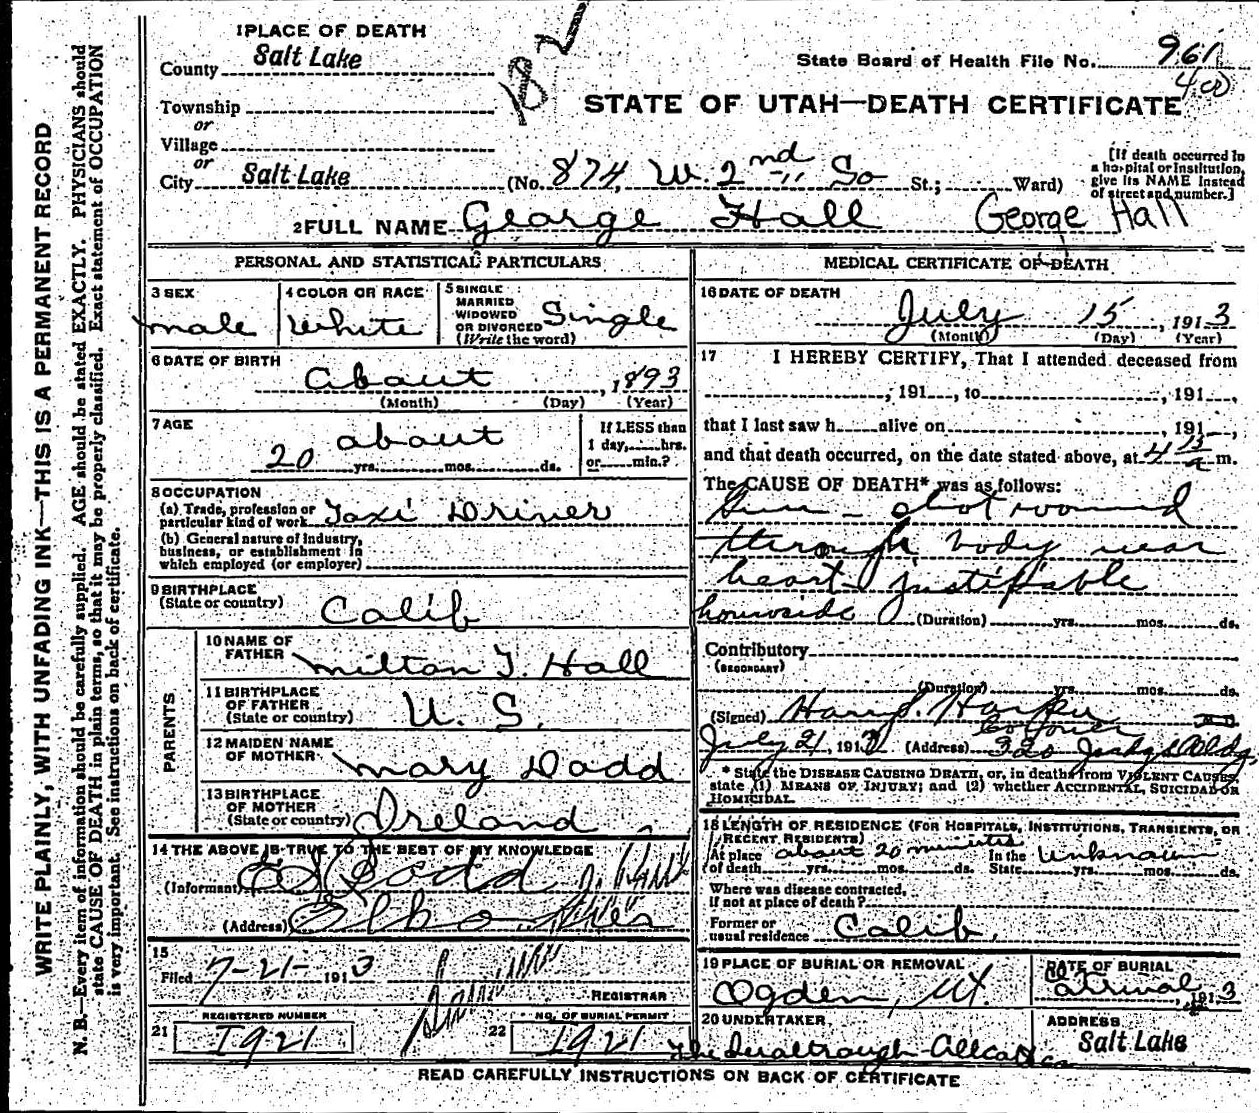 WRITE PLAINLY, WITH UNFADING INK—THIS IS A PERMANENT RECORD
N. B.—Every item of information should be carefully supplied. AGE should be stated EXACTLY. PHYSICIANS should
state CAUSE OF DEATH in plain terms, so that it may be properly classified. Exact statement of OCCUPATION
is very important. See instructions on back of certificate.
1 PLACE OF DEATH
County Salt Lake
Township
or
Village
or
City Salt Lake
182
State Board of Health File No. 961
400
STATE OF UTAH—DEATH CERTIFICATE
(No. 874, W. 2nd So St.; Ward)
[If death occurred in
a hospital or institution,
give its NAME instead
of street and number.]
2 FULL NAME George Hall George Hall
PERSONAL AND STATISTICAL PARTICULARS
3 SEX
male
4 COLOR OR RACE
White
5 SINGLE
MARRIED
WIDOWED
OR DIVORCED
(Write the word)
Single
6 DATE OF BIRTH
about , 1893
(Month) (Day) (Year)
7 AGE
about
20 yrs. mos. ds.
If LESS than
1 day, hrs.
or min.?
8 OCCUPATION
(a) Trade, profession or
particular kind of work Taxi Driver
(b) General nature of industry,
business, or establishment in
which employed (or employer)
9 BIRTHPLACE
(State or country)
Calif
PARENTS
10 NAME OF
FATHER
Milton T. Hall
11 BIRTHPLACE
OF FATHER
(State or country)
U. S.
12 MAIDEN NAME
OF MOTHER
Mary Dodd
13 BIRTHPLACE
OF MOTHER
(State or country)
Ireland
14 THE ABOVE IS TRUE TO THE BEST OF MY KNOWLEDGE
(Informant)
(Address)
15
Filed 7-21- 1913
REGISTRAR
21 REGISTERED NUMBER
1921
22 NO. OF BURIAL PERMIT
1921
MEDICAL CERTIFICATE OF DEATH
16 DATE OF DEATH
July 15, 1913
(Month) (Day) (Year)
17 I HEREBY CERTIFY, That I attended deceased from
, 191 , to , 191 ,
that I last saw h alive on 191 ,
and that death occurred, on the date stated above, at 4 15 a m.
The CAUSE OF DEATH* was as follows:
Gun-shot wound
through body near
heart - justifiable
homoside (Duration) yrs. mos. ds.
Contributory
(SECONDARY)
(Duration) yrs. mos. ds.
(Signed) Harry S. Harper
Coroner
July 21, 1913 (Address) 320 Judge Bldg.
* State the DISEASE CAUSING DEATH, or, in deaths from VIOLENT CAUSES,
state (1) MEANS OF INJURY; and (2) whether ACCIDENTAL, SUICIDAL OR
HOMICIDAL.
18 LENGTH OF RESIDENCE (FOR HOSPITALS, INSTITUTIONS, TRANSIENTS, OR
RECENT RESIDENTS)
At place about 20 minutes In the Unknown
of death yrs. mos. ds. State yrs. mos. ds.
Where was disease contracted,
if not at place of death?
Former or
usual residence Calif.
19 PLACE OF BURIAL OR REMOVAL
Ogden, Ut.
DATE OF BURIAL
on arrival, 1913
20 UNDERTAKER
ADDRESS
Salt Lake
READ CAREFULLY INSTRUCTIONS ON BACK OF CERTIFICATE